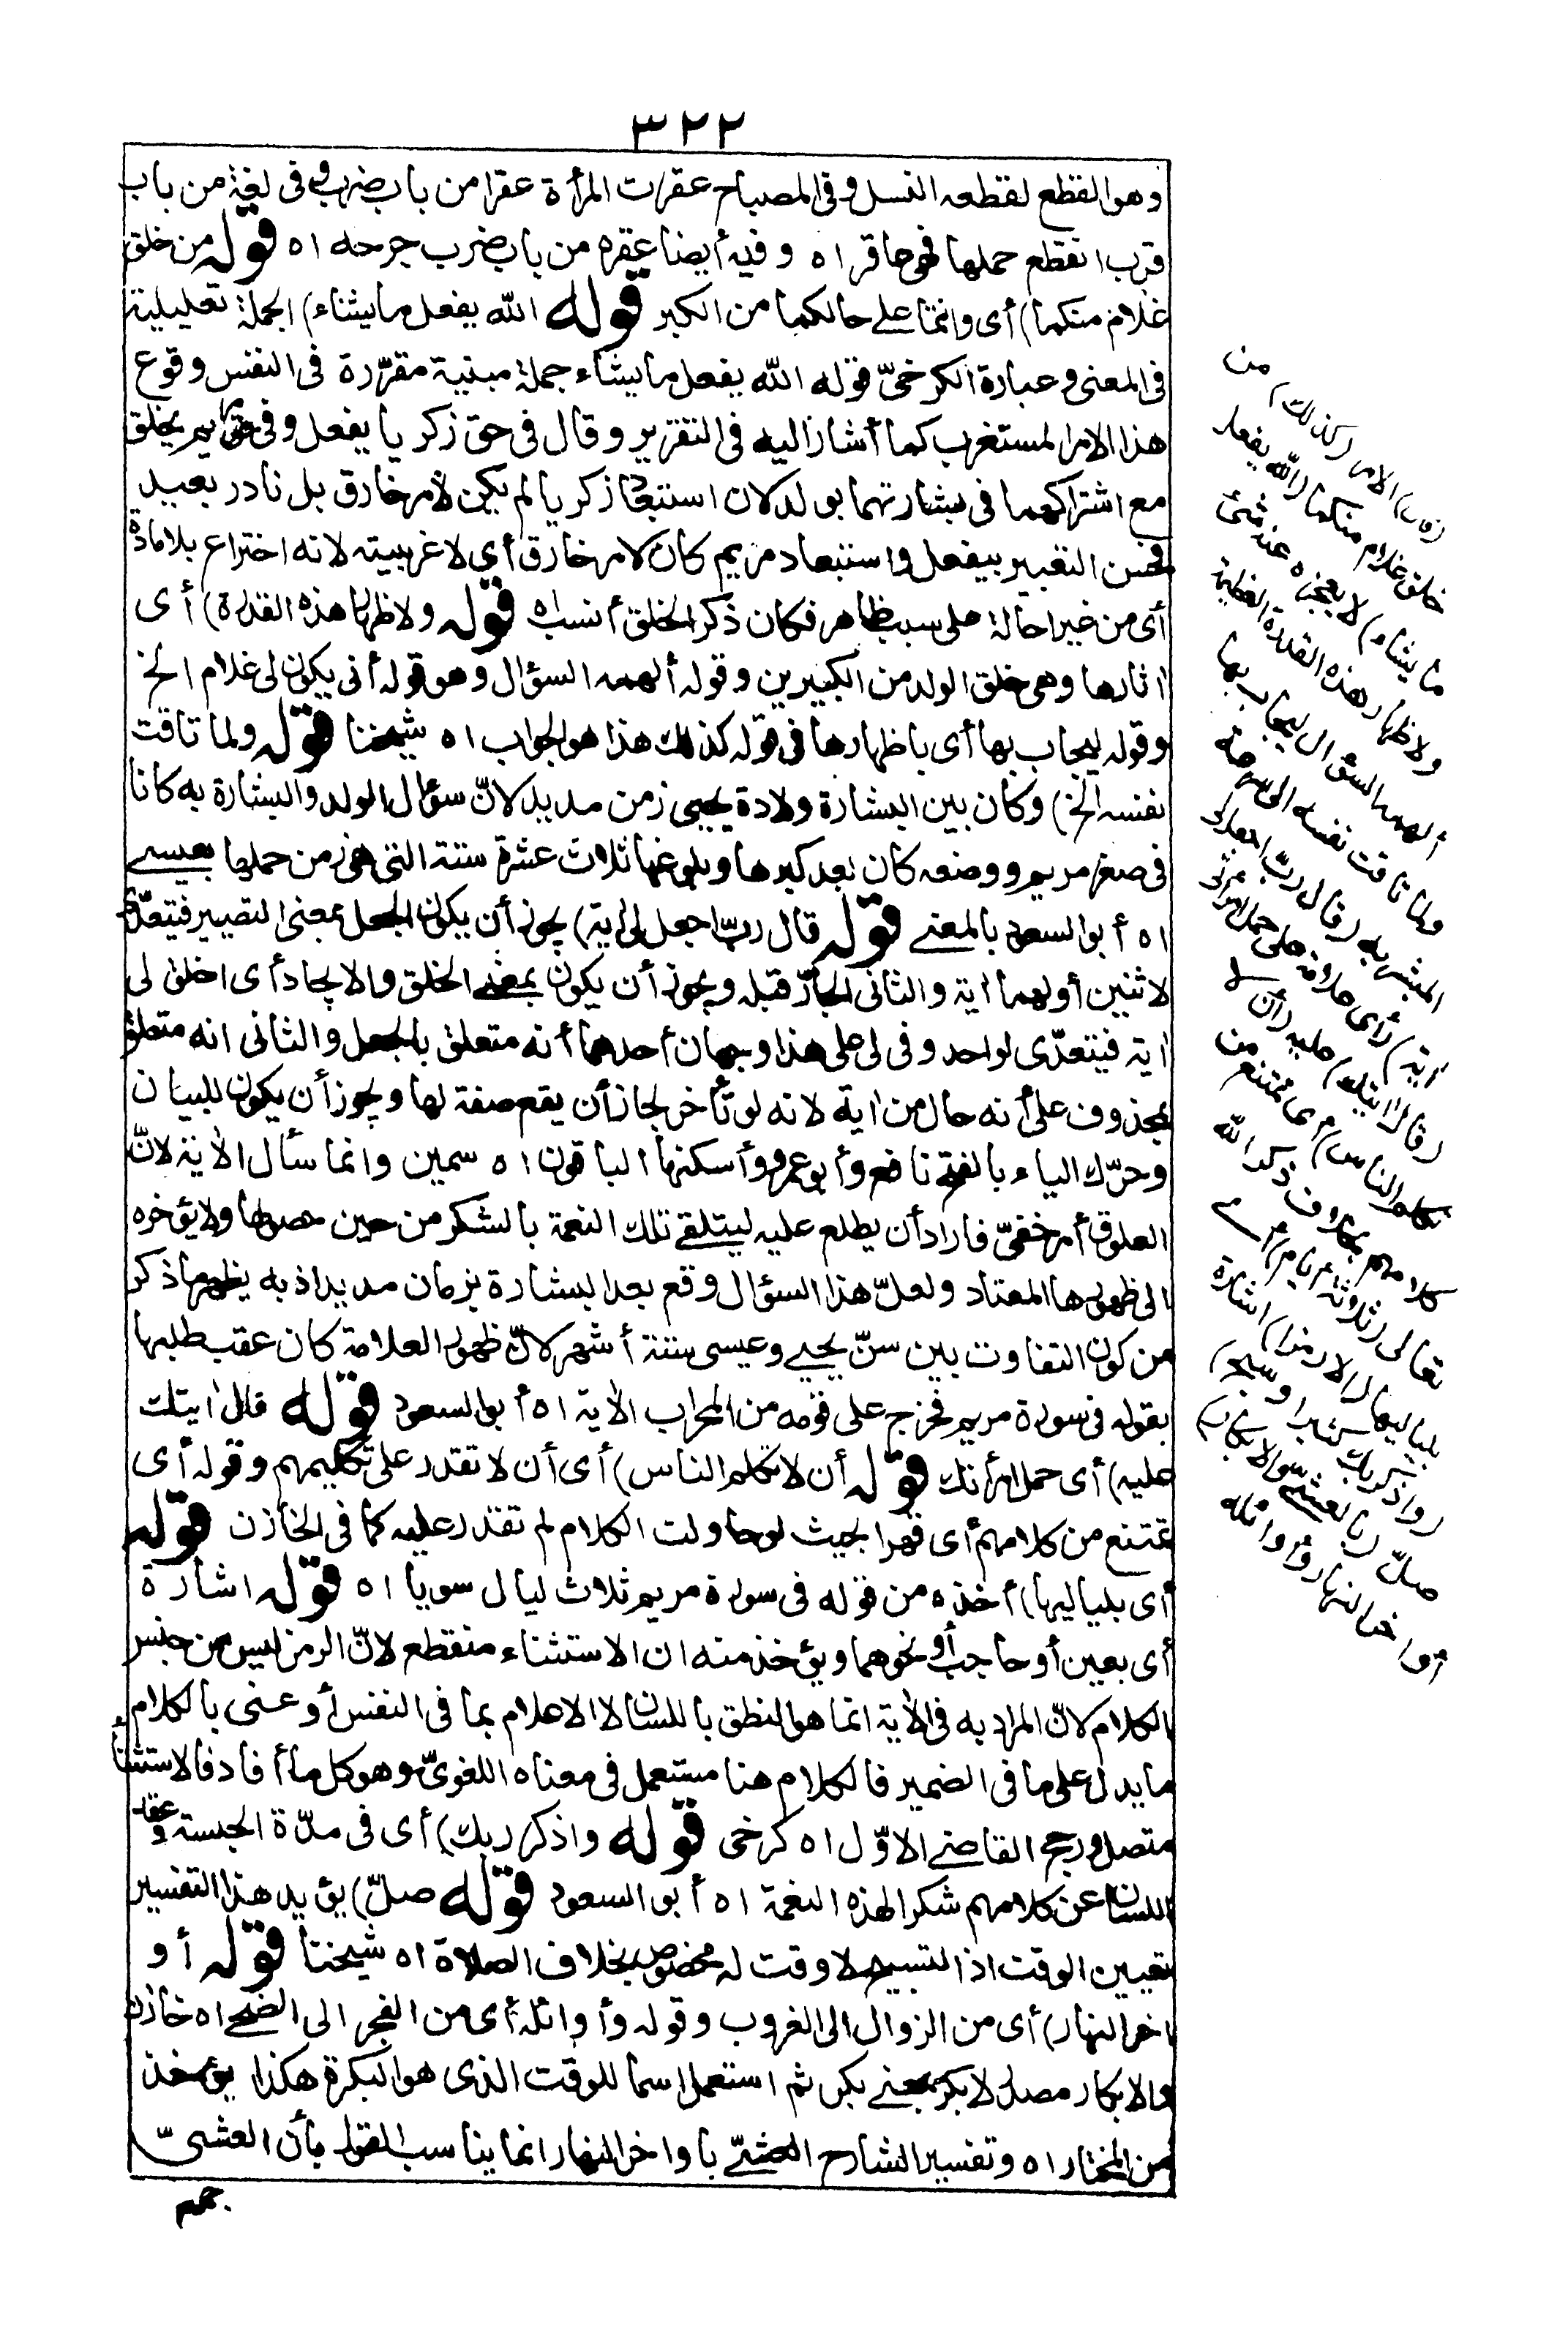 ٣٢٢
وهو القطع لقطعه النسل وفي المصباح عقرت المرأة عقرا من باب ضرب وفى لغة من باب
قرب انقطع حملها فهى عاقر اه وفيه أيضا عقره من باب ضرب جرحه اه قوله من خلق
غلام منكما) أى وانتما على حالكما من الكبر قوله الله يفعل ما يشاء) الجملة تعليلية
فى المعنى وعبارة الكرخىّ قوله الله يفعل ما يشاء جملة مبنية مقرّرة فى النفس وقوع
هذا الامر المستغرب كما أشار اليه فى التقرير وقال فى حق زكريا يفعل وفى حق مريم يخلق
مع اشتراكهما فى بشارتهما بولد لان استبعاد زكريا لم يكن لأمر خارق بل نادر بعيد
فحسن التعبير بيفعل واستبعاد مريم كان لامر خارق أى لا غريبيته لانه اختراع بلا مادة
أى من غير احالة على سبب ظاهر فكان ذكر الخلق أنسب اه قوله ولاظهار هذه القدرة) أى
اثارها وهى خلق الولد من الكبيرين وقوله ألهمه السؤال وهو قوله أنى يكون لى غلام الخ
وقوله ليجاب بها أى باظهارها فى قوله كذلك هذا هو الجواب اه شيخنا قوله ولما تاقت
نفسه الخ) وكان بين البشارة وولادة يحيى زمن مديد لانّ سؤال الولد والبشارة به كانا
فى صغر مريم ووضعه كان بعد كبرها وبلوغها ثلاث عشرة سنة التى هى زمن حملها بعيسى
اه أبو السعود بالمعنى قوله قال ربّ اجعل لى اية) يجوز أن يكون الجعل بمعنى التصيير فيتعدّى
لاثنين أولهما اية والثانى الجارّ قبله ويجوز أن يكون بمعنى الخلق والايجاد أى اخلق لى
اية فيتعدّى لواحد وفى لى على هذا وجهان أحدهما أنه متعلق بالجعل والثانى انه متعلق
بمحذوف على أنه حال من اية لانه لو تأخر لجاز أن يقع صفة لها ويجوز أن يكون للبيان
وحرّك الياء بالفتح نافع وأبو عمرو وأسكنها الباقون اه سمين وانما سأل الأية لانّ
العلوق أمر خفىّ فاراد أن يطلع عليه ليتلقى تلك النعمة بالشكر من حين حصولها ولا يؤخره
الى ظهورها المعتاد ولعلّ هذا السؤال وقع بعد البشارة بزمان مديد اذ به يظهر ما ذكر
من كون التفاوت بين سنّ يحيى وعيسى ستة أشهر لانّ ظهور العلامة كان عقب طلبها
بقوله فى سورة مريم فخرج على قومه من المحراب الأية اه أبو السعود قوله قال ايتك
عليه) أى حمل امرأتك قوله أن لا تكلم الناس) أى أن لا تقدر على تكليمهم وقوله أى
تمتنع من كلامهم أى قهرا بحيث لو حاولت الكلام لم تقدر عليه كما فى الخازن قوله
أى بلياليها) أخذه من قوله فى سورة مريم ثلاث ليال سويا اه قوله اشارة
أى بعين أو حاجب أو نحوهما ويؤخذ منه ان الاستثناء منقطع لانّ الرمز ليس من جنس
الكلام لانّ المراد به فى الأية انما هو النطق باللسان لا الاعلام بما فى النفس أو عنى بالكلام
ما يدل على ما فى الضمير فالكلام هنا مستعمل فى معناه اللغوىّ وهو كل ما أفاد فالاستثناء
متصل ورجح القاضى الاوّل اه كرخى قوله واذكر ربك) أى فى مدّة الحبسة وعقد
اللسان عن كلامهم شكرا لهذه النعمة اه أبو السعود قوله صلّ) يؤيد هذا التفسير
تعيين الوقت اذ التسبيح لا وقت له مخصوص بخلاف الصلاة اه شيخنا قوله أو
اخر النهار) أى من الزوال الى الغروب وقوله وأوائله أى من الفجر الى الضحى اه خازن
والابكار مصدر لابكر بمعنى بكر ثم استعمل اسما للوقت الذى هو البكرة هكذا يؤخذ
من المختار اه وتفسير الشارح العشىّ باواخر النهار انما يناسب القول بأن العشىّ
(قال) الامر (كذلك) من
خلق غلام منكما (الله يفعل
ما يشاء) لا يعجزه عنه شئ
ولاظهار هذه القدرة العظيمة
ألهمه السؤال ليجاب بها
ولما تاقت نفسه الى سرعة
المبشر به (قال ربّ اجعل لى
اية) أى علامة على حمل امرأتى
(قال ايتك) عليه (أن لا
تكلم الناس) أى تمتنع من
كلامهم بخلاف ذكر الله
تعالى (ثلاثة أيام) أى
بلياليها (الا رمزا) اشارة
(واذكر ربك كثيرا وسبح)
صلّ (بالعشىّ والابكار)
أواخر النهار وأوائله